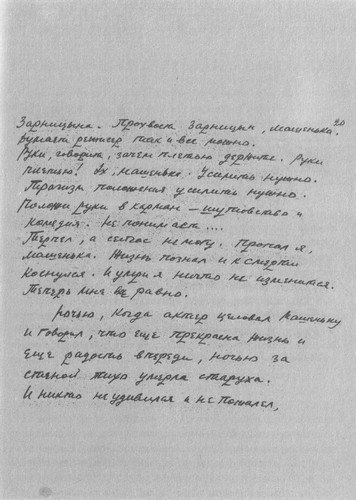 20
Зарницына. Прохвост Зарницын, Машенька.
думает режиссер так и все можно.
Руки, говорит, зачем плетью держите. Руки
плетью! Эх, Машенька. Усилить нужно.
Трагизм положения усилить нужно.
Положи руки в карман – шутовство и
комедия. Не понимает....
Терпел, а сейчас не могу. Пропал я,
Машенька. Жизнь познал и к смерти
коснулся. И умри я ничто не изменится.
Теперь мне все равно.
Ночью, когда актер целовал Машеньку
и говорил, что еще прекрасна жизнь и
еще радость впереди, ночью за
стеной тихо умерла старуха.
И никто не удивился и не пожалел,